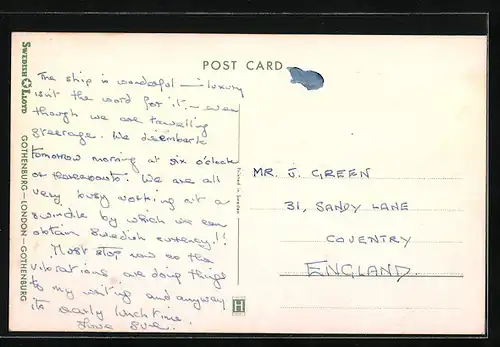 POST CARD
SWEDISH LLOYD
GOTHENBURG—LONDON—GOTHENBURG
The ship is wonderful — luxury
isn't the word for it — even
though we are travelling
steerage. We disembark
tomorrow morning at six o'clock
We are all
very busy working out a
swindle by which we can
obtain Swedish currency!!
Must stop now as the
vibrations are doing things
to my writing and anyway
its early lunch time.
Love Sue.
Printed in Sweden
MR. J. GREEN
31, SANDY LANE
COVENTRY
ENGLAND.
H